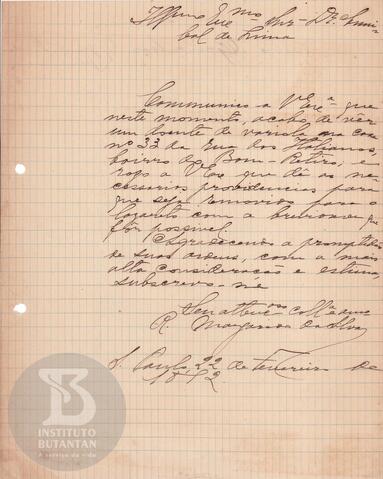 Illmo Exmo Snr. Dr. Anni-
bal de Lima
Communico a V Exa que
neste momento, acabo de vêr
um doente de variola na casa
nº 33 da rua dos Italianos,
bairro do Bom-Retiro; e
rogo a V Exa que dê as ne-
cessarias providencias para
que seja removido para o
lazareto com a brevidade que
fôr possivel.
Agradecendo a promptidão
de suas ordens, com a mais
alta consideração e estima,
subscrevo-me
collega
R. da Silva
S. Paulo, 22 de Fevereiro de
INSTITUTO
BUTANTAN
A serviço da vida